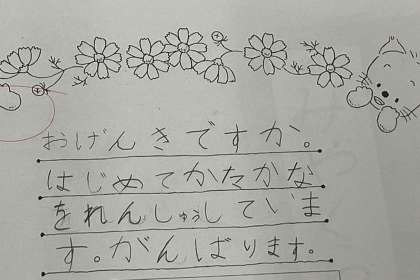 おげんきですか。
はじめてかたかな
をれんしゅうしていま
す。がんばります。